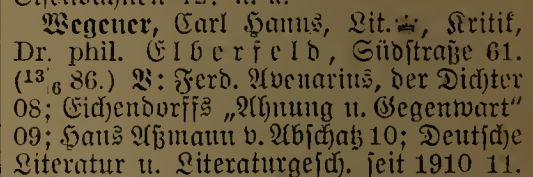 Wegener, Carl Hanns, Lit. Kritik,
Dr. phil. Elberfeld, Südstraße 61.
(13/6 86.) V: Ferd. Avenarius, der Dichter
08; Eichendorffs „Ahnung u. Gegenwart“
09; Hans Aßmann v. Abschatz 10; Deutsche
Literatur u. Literaturgesch. seit 1910 11.